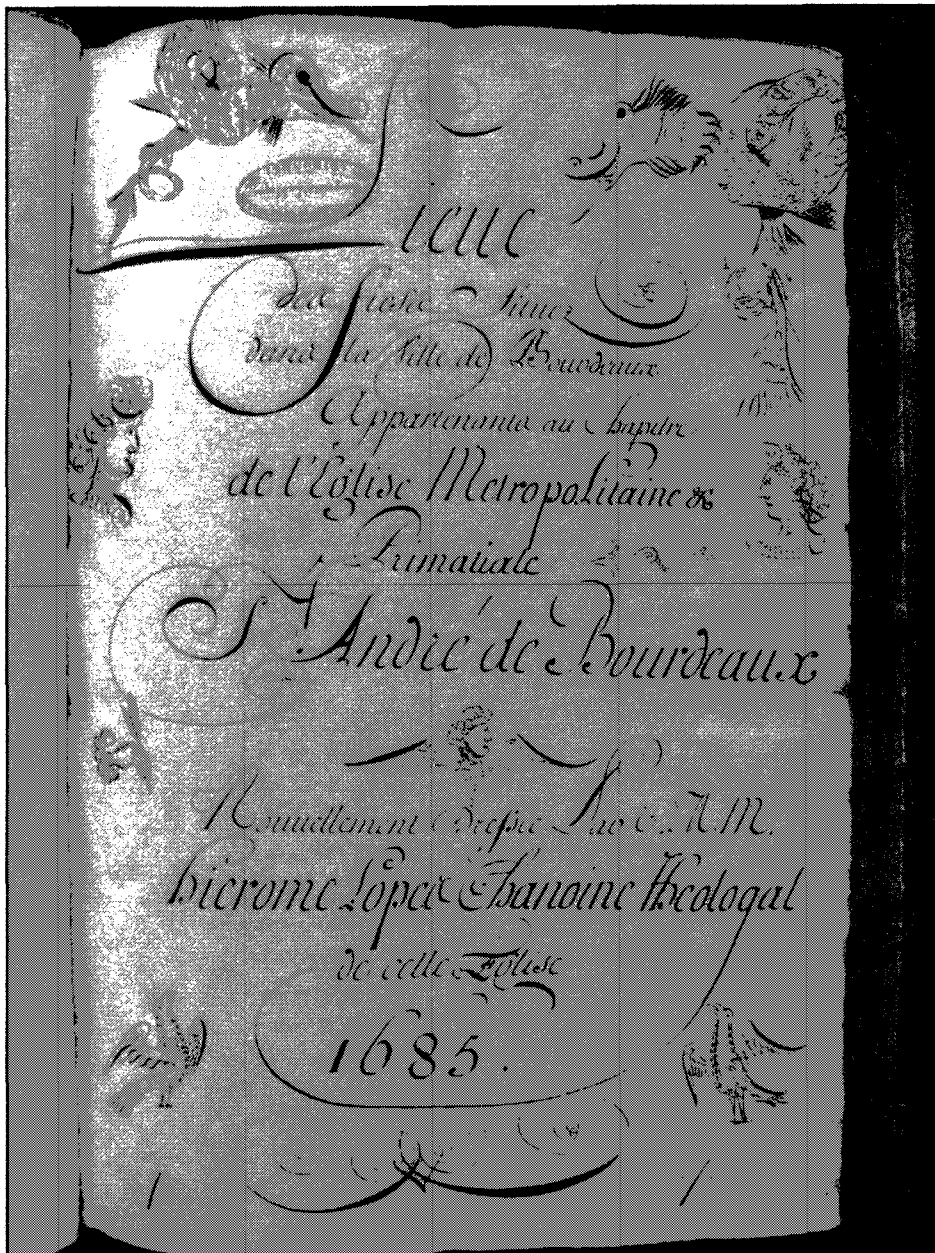 des fiefs
dans la Ville de Bourdeaux
Appartenants au Chapitre
de l'Eglise Metropolitaine &
Primatiale
St André de Bourdeaux
Nouuellement Dressée Par M.
hierome Lopes Chanoine Theologal
de cette Eglise
1685.